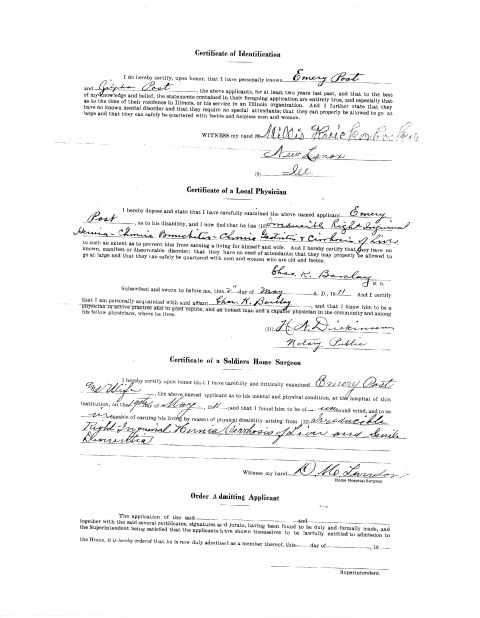 Certificate of Identification
I do hereby certify, upon honor, that I have personally known Emery Post
and Post, the above applicants, for at least two years last past, and that to the best
of my knowledge and belief, the statements contained in their foregoing application are entirely true, and especially that
as to the time of their residence in Illinois, or his service in an Illinois organization. And I further state that they
have no known mental disorder and that they require no special attendants; that they can properly be allowed to go at
large and that they can safely be quartered with feeble and helpless men and women.
WITNESS my hand Willis
New Lenox
(9) Ill.
Certificate of a Local Physician
I hereby depose and state that I have carefully examined the above named applicant Emery
Post, as to his disability, and I now find that he has (10) Right Inguinal
Hernia - Chronic Bronchitis - Chronic & Cirrhosis of Liver
to such an extent as to prevent him from earning a living for himself and wife. And I hereby certify that they have no
known, manifest or discoverable disorder; that they have no need of attendants; that they may properly be allowed to
go at large and that they can safely be quartered with men and women who are old and feeble.
Chas. K. Barclay
M. D.
Subscribed and sworn to before me, this 2" day of May A. D., 1911 And I certify
that I am personally acquainted with said affiant Chas. K. Barclay, and that I know him to be a
physician in active practice and in good repute, and an honest man and a capable physician in the community and among
his fellow physicians, where he lives.
(11) H. A. Dickinson
Notary Public
Certificate of a Soldiers Home Surgeon
I hereby certify upon honor that I have carefully and critically examined Emery Post
and Wife, the above named applicant as to his mental and physical condition, at the hospital of this
institution, on the of May 1911 and that I found him to be of unsound mind, and to be
incapable of earning his living by reason of physical disability arising from Irreducible
Right Inguinal Hernia, Cirrhosis of Liver and Senile
Dimentia
Witness my hand D. M. Landon
Home Hospital Surgeon
Order Admitting Applicant
The application of the said and
together with the said several certificates, signatures and jurats, having been found to be duly and formally made, and
the Superintendent being satisfied that the applicants have shown themselves to be lawfully entitled to admission to
the Home, it is hereby ordered that he is now duly admitted as a member thereof, this day of , 19
Superintendent